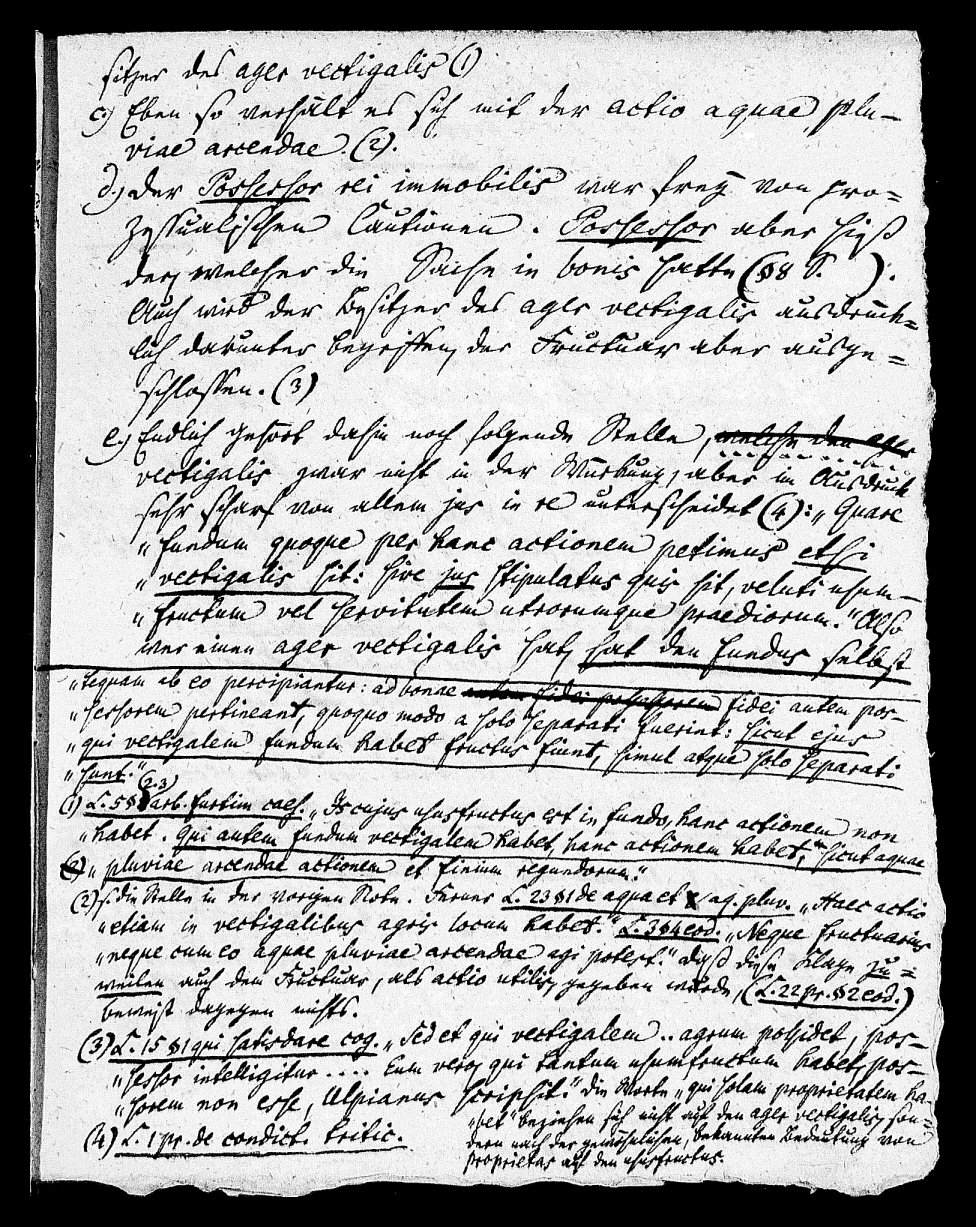 sitzer des ager vectigalis (1)
c.) Eben so verhält es sich mit der actio aquae plu-
viae arcendae. (2).
d.) Der Possessor rei immobilis war frey von pro-
zessualischen Cautionen. Possessor aber hieß
der, welcher die Sache in bonis hatte (§8 S. ).
Auch wird der Besitzer des ager vectigalis ausdrück-
lich darunter begriffen, der Fructuar aber ausge-
schlossen. (3)
e.) Endlich gehört dahin noch folgende Stelle, welche den ager
vectigalis zwar nicht in der Wirkung, aber im Ausdruck
sehr scharf von allem jus in re unterscheidet (4): „Quare
„fundum quoque per hanc actionem petimus etsi
„vectigalis sit: sive jus stipulatus quis sit, veluti usum-
„fructum vel servitutem utrorumque praediorum." Also
wer einen ager vectigalis hat, hat den fundus selbst
„tequam ab eo percipiantur: ad bonae autem fidei possessorem fidei autem pos-
„sessorem pertineant, quoquo modo a solo separati fuerint: sicut ejus
„qui vectigalem fundum habet fructus fiunt, simul atque solo separati
„sunt."
(1) L. 5 § (2.3) arb. furtim caes. „Is cujus ususfructus est in fundo, hanc actionem non
„habet. Qui autem fundum vectigalem habet, hanc actionem habet, sicut aquae
(2) „pluviae arcendae actionem et finium regundorum."
(2) s. die Stelle in der vorigen Note. Ferner L. 23 §1 de aqua et aq. pluv. „Haec actio
„etiam in vectigalibus agris locum habet." L. 3 §4 eod. „Neque fructuarius
„neque cum eo aquae pluviae arcendae agi potest." daß diese Klage zu-
weilen auch dem Fructuar, als actio utilis, gegeben wurde, (L. 22 pr. §2 eod.)
beweist dagegen nichts.
(3) L. 15 §1 qui satisdare cog. „Sed et qui vectigalem .. agrum possidet, pos-
„sessor intelligitur .... Eum vero, qui tantum usumfructum habet, pos-
„sorem non esse, Ulpianus scripsit." Die Worte „qui solam proprietatem ha-
„bet" beziehen sich nicht auf den ager vectigalis, son-
dern nach der gewöhnlichen, bekannten Bedeutung von
proprietas auf den ususfructus.
(4) L. 1 pr. de condict. tritic.